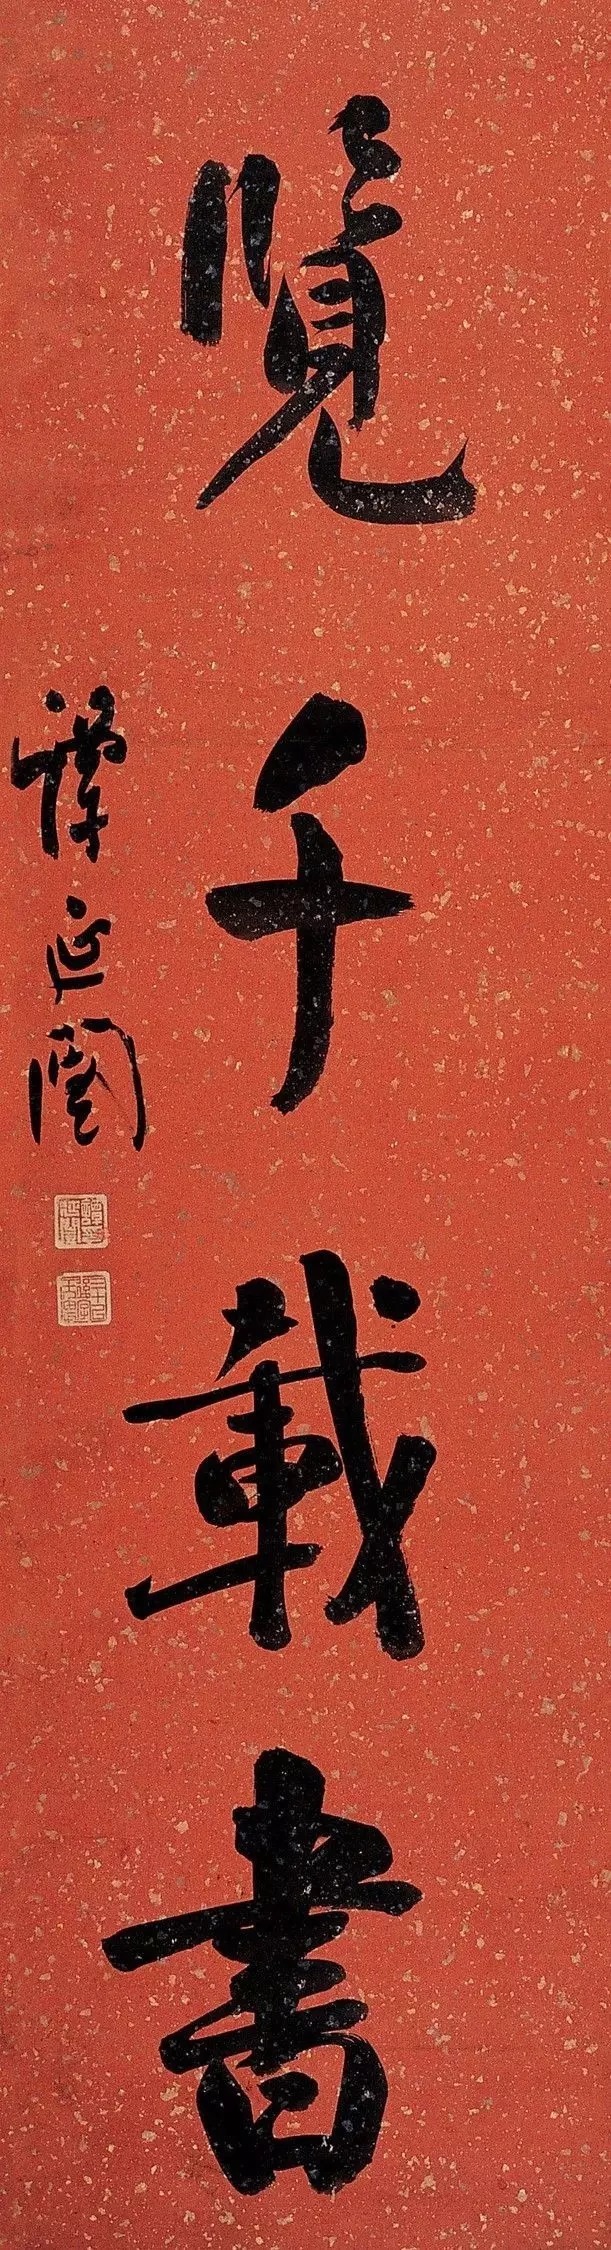 覽千載書
譚延闓